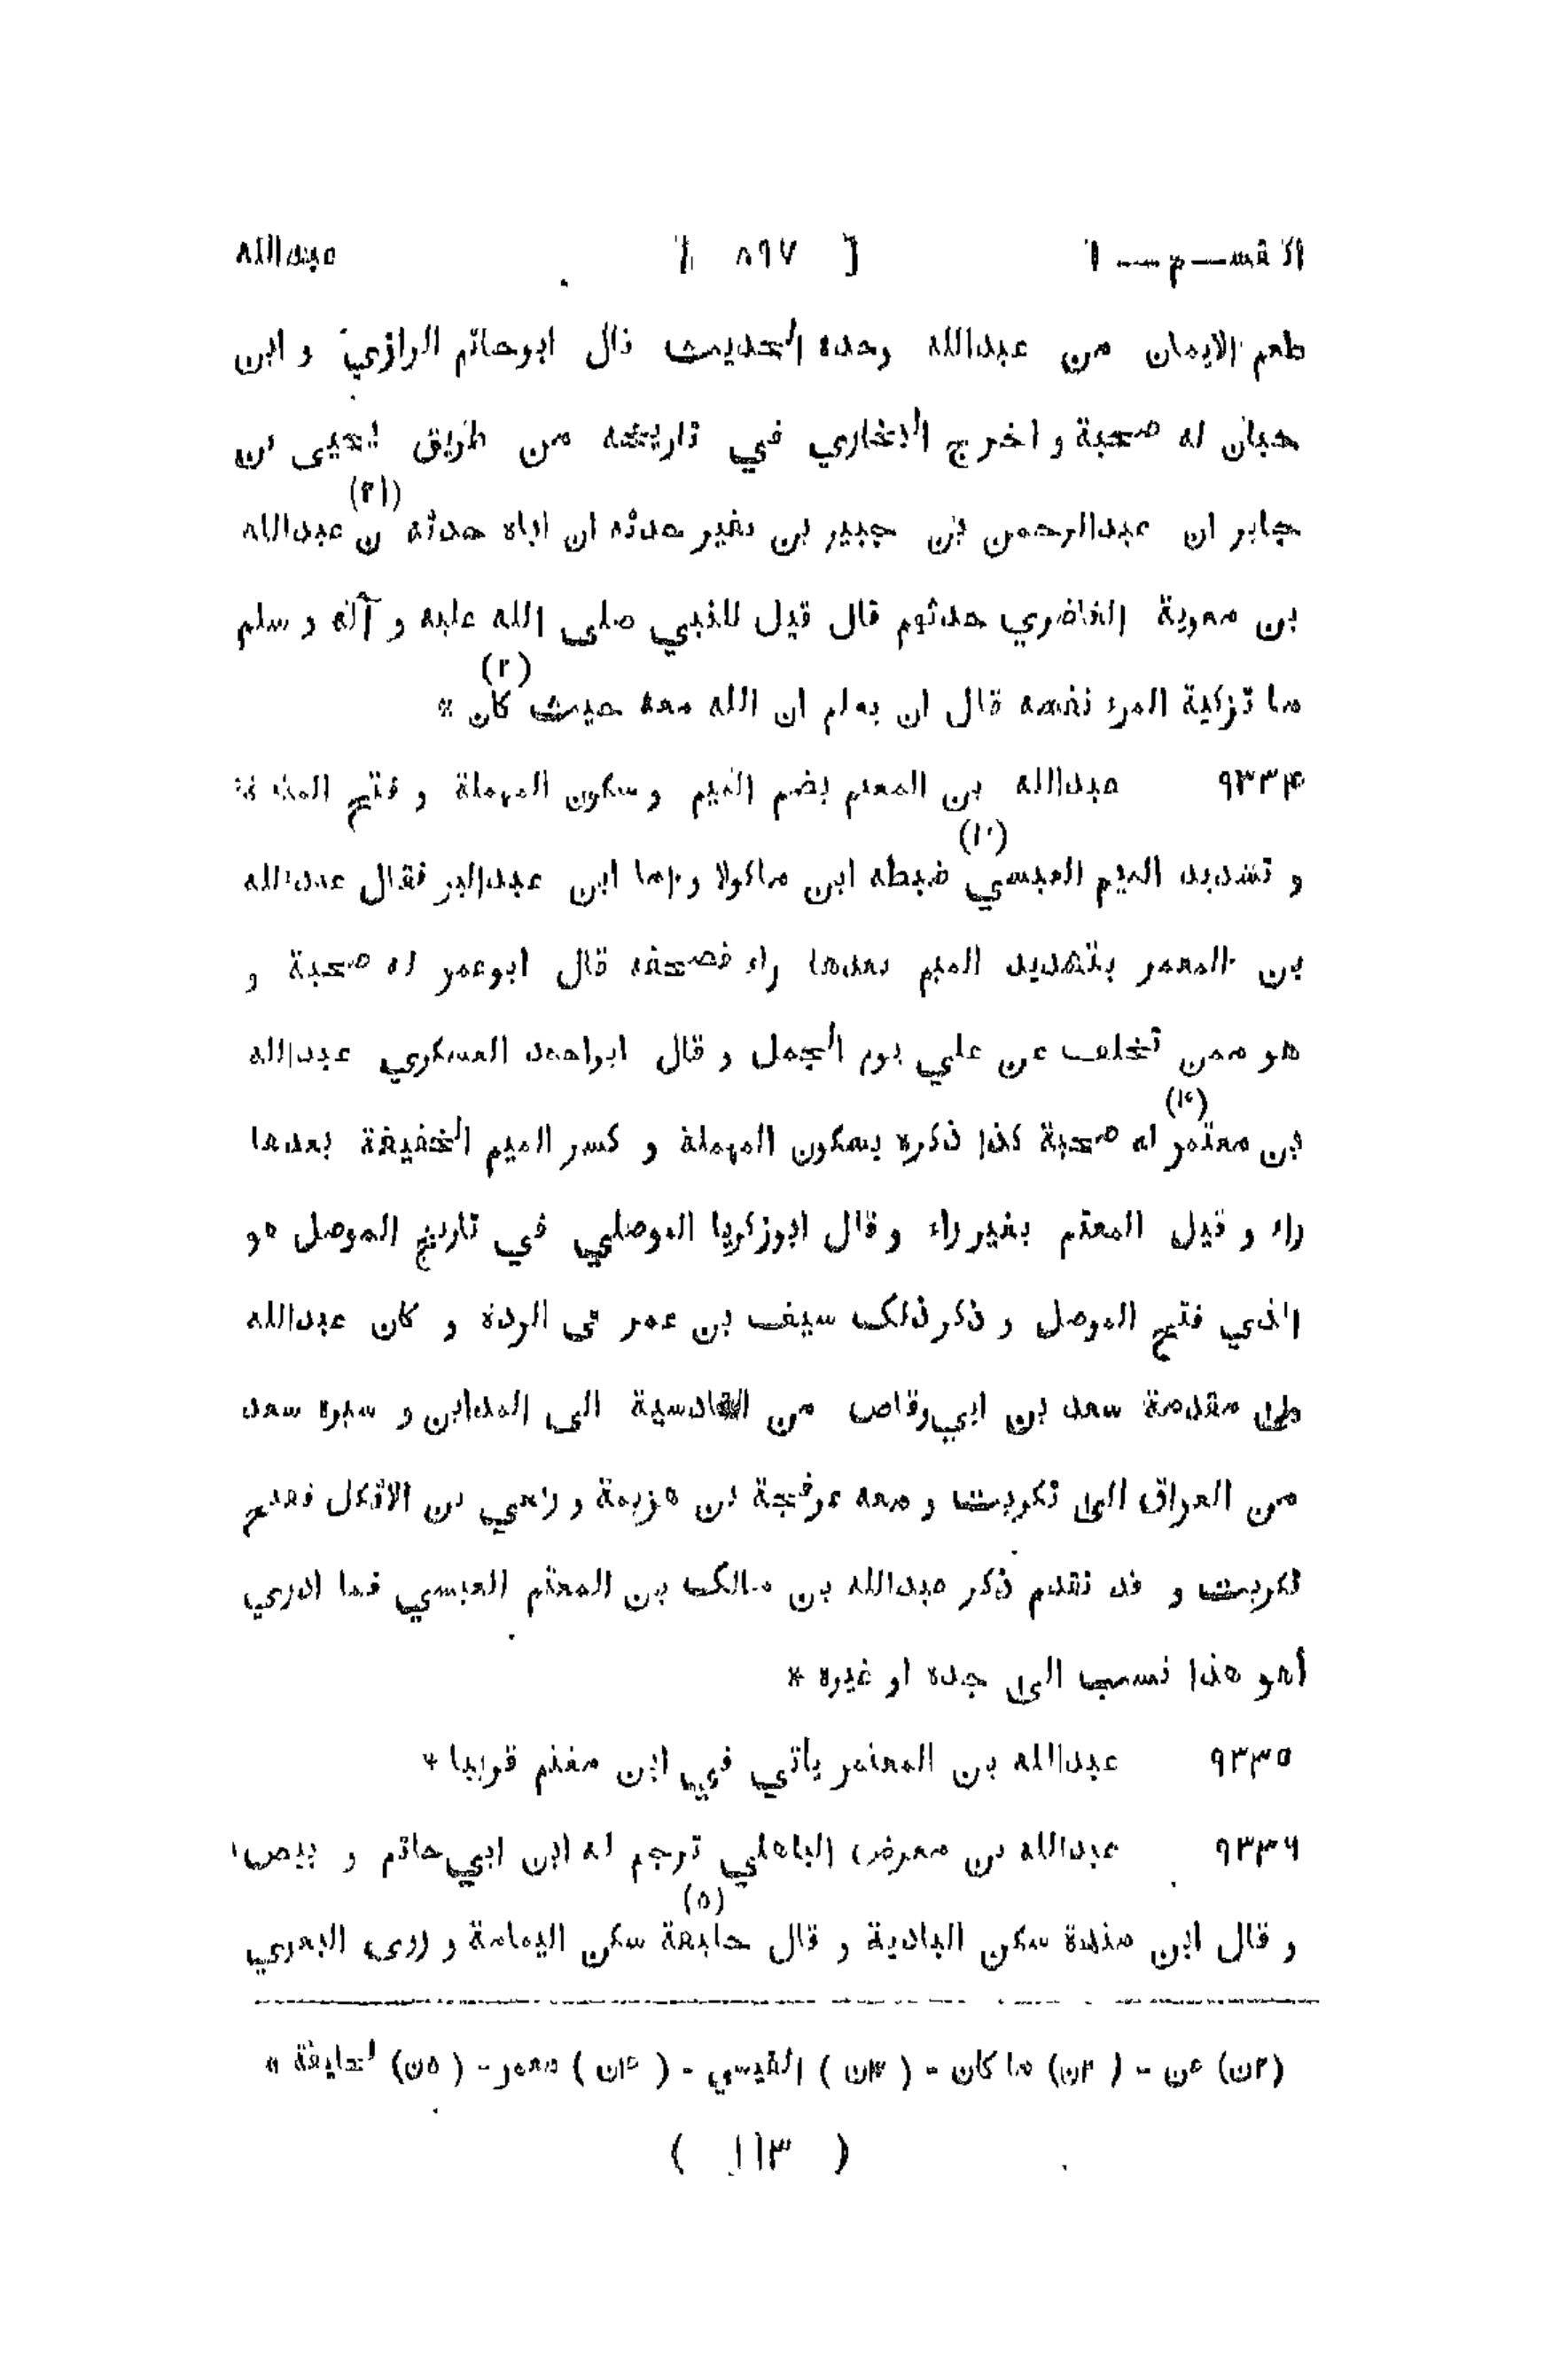 القســم ــ ١ [ ٨٩٧ ] عبدالله
طعم الايمان من عبدالله وحده الحديث قال ابوحاتم الرازي و ابن
حبان له صحبة و اخرج البخاري في تاريخه من طريق يحيى بن
جابر ان عبدالرحمن بن جبير بن نفير حدثه ان اباه حدثه (٢) ن عبدالله
بن معوية الغاضري حدثهم قال قيل للنبي صلى الله عليه و آله و سلم
ما تزكية المرء نفسه قال ان يعلم ان الله معه حيث كان (٢) *
٩٣٣۴ عبدالله بن المعتم بضم الميم و سكون المهملة و فتح المثناة
و تشديد الميم العبسي (٣) ضبطه ابن ماكولا و اما ابن عبدالبر فقال عبدالله
بن المعمر بتشديد الميم بعدها راء فصحفه قال ابوعمر له صحبة و
هو ممن تخلف عن علي يوم الجمل و قال ابواحمد العسكري عبدالله
بن معتمر (۴) له صحبة كذا ذكره بسكون المهملة و كسر الميم الخفيفة بعدها
راء و قيل المعتم بغير راء و قال ابوزكريا الموصلي في تاريخ الموصل هو
الذي فتح الموصل و ذكر ذلك سيف بن عمر في الردة و كان عبدالله
على مقدمة سعد بن ابي وقاص من القادسية الى المداين و سيره سعد
من العراق الى تكريت و معه عرفجة بن هزيمة و ربعي بن الافكل ففتح
تكريت و قد تقدم ذكر عبدالله بن مالك بن المعتم العبسي فما ادري
أهو هذا نسب الى جده او غيره *
٩٣٣٥ عبدالله بن المعتمر ياتي في ابن مغنم قريبا *
٩٣٣٦ عبدالله بن معرض الباهلي ترجم له ابن ابي حاتم و بيض
و قال ابن مندة سكن البادية و قال حليفة (٥) سكن اليمامة و روى البغوي
(٢ن) عن - (٢ن) ما كان - (٣ن) القيسي - (۴ن) معمر - (٥ن) خليفة *
( ١١٣ )